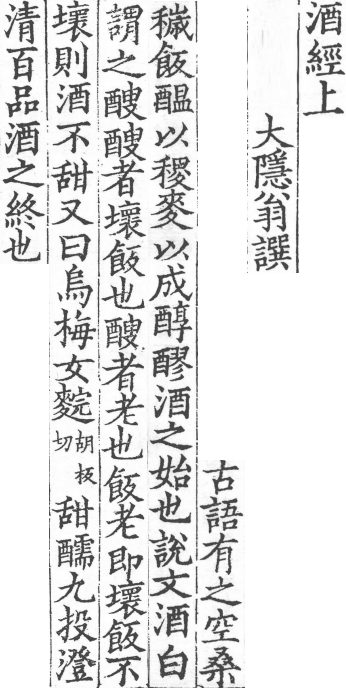 酒經上
大隱翁譔
古語有之空桑
穢飯醞以稷麥以成醇醪酒之始也說文酒白
謂之醙醙者壞飯也醙者老也飯老即壞飯不
壞則酒不甜又曰烏梅女䴷胡板切甜醹九投澄
清百品酒之終也